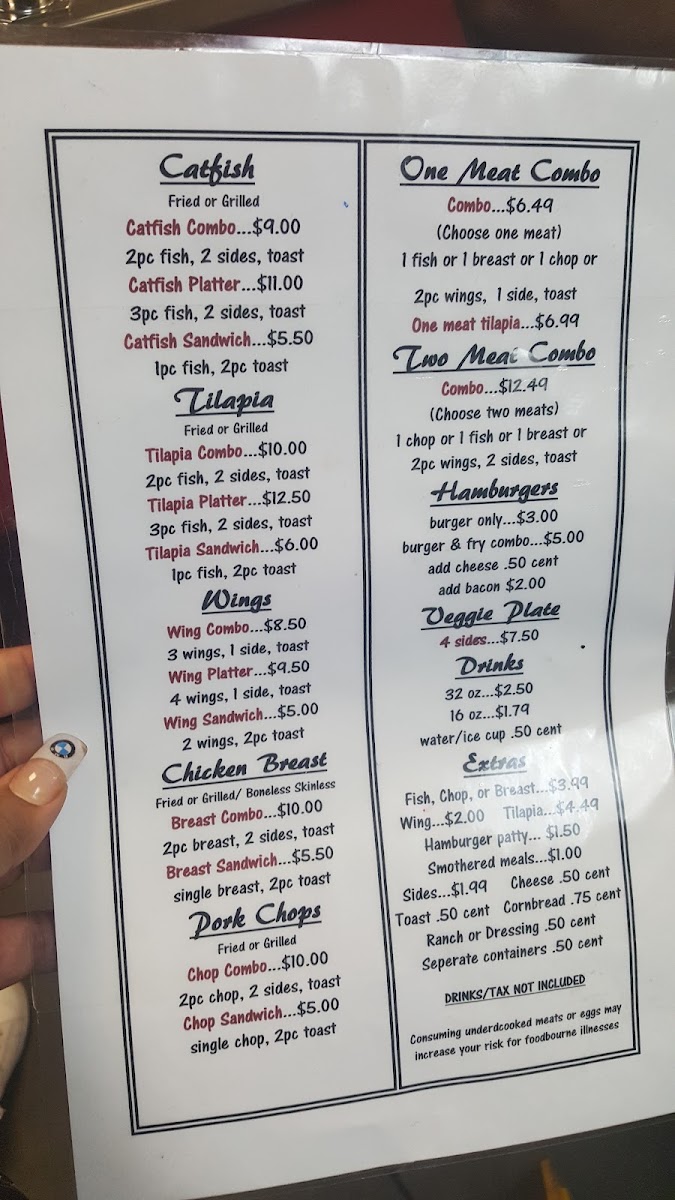 Catfish
Fried or Grilled
Catfish Combo...$9.00
2pc fish, 2 sides, toast
Catfish Platter...$11.00
3pc fish, 2 sides, toast
Catfish Sandwich...$5.50
1pc fish, 2pc toast
Tilapia
Fried or Grilled
Tilapia Combo...$10.00
2pc fish, 2 sides, toast
Tilapia Platter...$12.50
3pc fish, 2 sides, toast
Tilapia Sandwich...$6.00
1pc fish, 2pc toast
Wings
Wing Combo...$8.50
3 wings, 1 side, toast
Wing Platter...$9.50
4 wings, 1 side, toast
Wing Sandwich...$5.00
2 wings, 2pc toast
Chicken Breast
Fried or Grilled/ Boneless Skinless
Breast Combo...$10.00
2pc breast, 2 sides, toast
Breast Sandwich...$5.50
single breast, 2pc toast
Pork Chops
Fried or Grilled
Chop Combo...$10.00
2pc chop, 2 sides, toast
Chop Sandwich...$5.00
single chop, 2pc toast
One Meat Combo
Combo...$6.49
(Choose one meat)
1 fish or 1 breast or 1 chop or
2pc wings, 1 side, toast
One meat tilapia...$6.99
Two Meat Combo
Combo...$12.49
(Choose two meats)
1 chop or 1 fish or 1 breast or
2pc wings, 2 sides, toast
Hamburgers
burger only...$3.00
burger & fry combo...$5.00
add cheese .50 cent
add bacon $2.00
Veggie Plate
4 sides...$7.50
Drinks
32 oz...$2.50
16 oz...$1.79
water/ice cup .50 cent
Extras
Fish, Chop, or Breast...$3.99
Wing...$2.00 Tilapia...$4.49
Hamburger patty... $1.50
Smothered meals...$1.00
Sides...$1.99 Cheese .50 cent
Toast .50 cent Cornbread .75 cent
Ranch or Dressing .50 cent
Seperate containers .50 cent
DRINKS/TAX NOT INCLUDED
Consuming underdcooked meats or eggs may
increase your risk for foodbourne illnesses